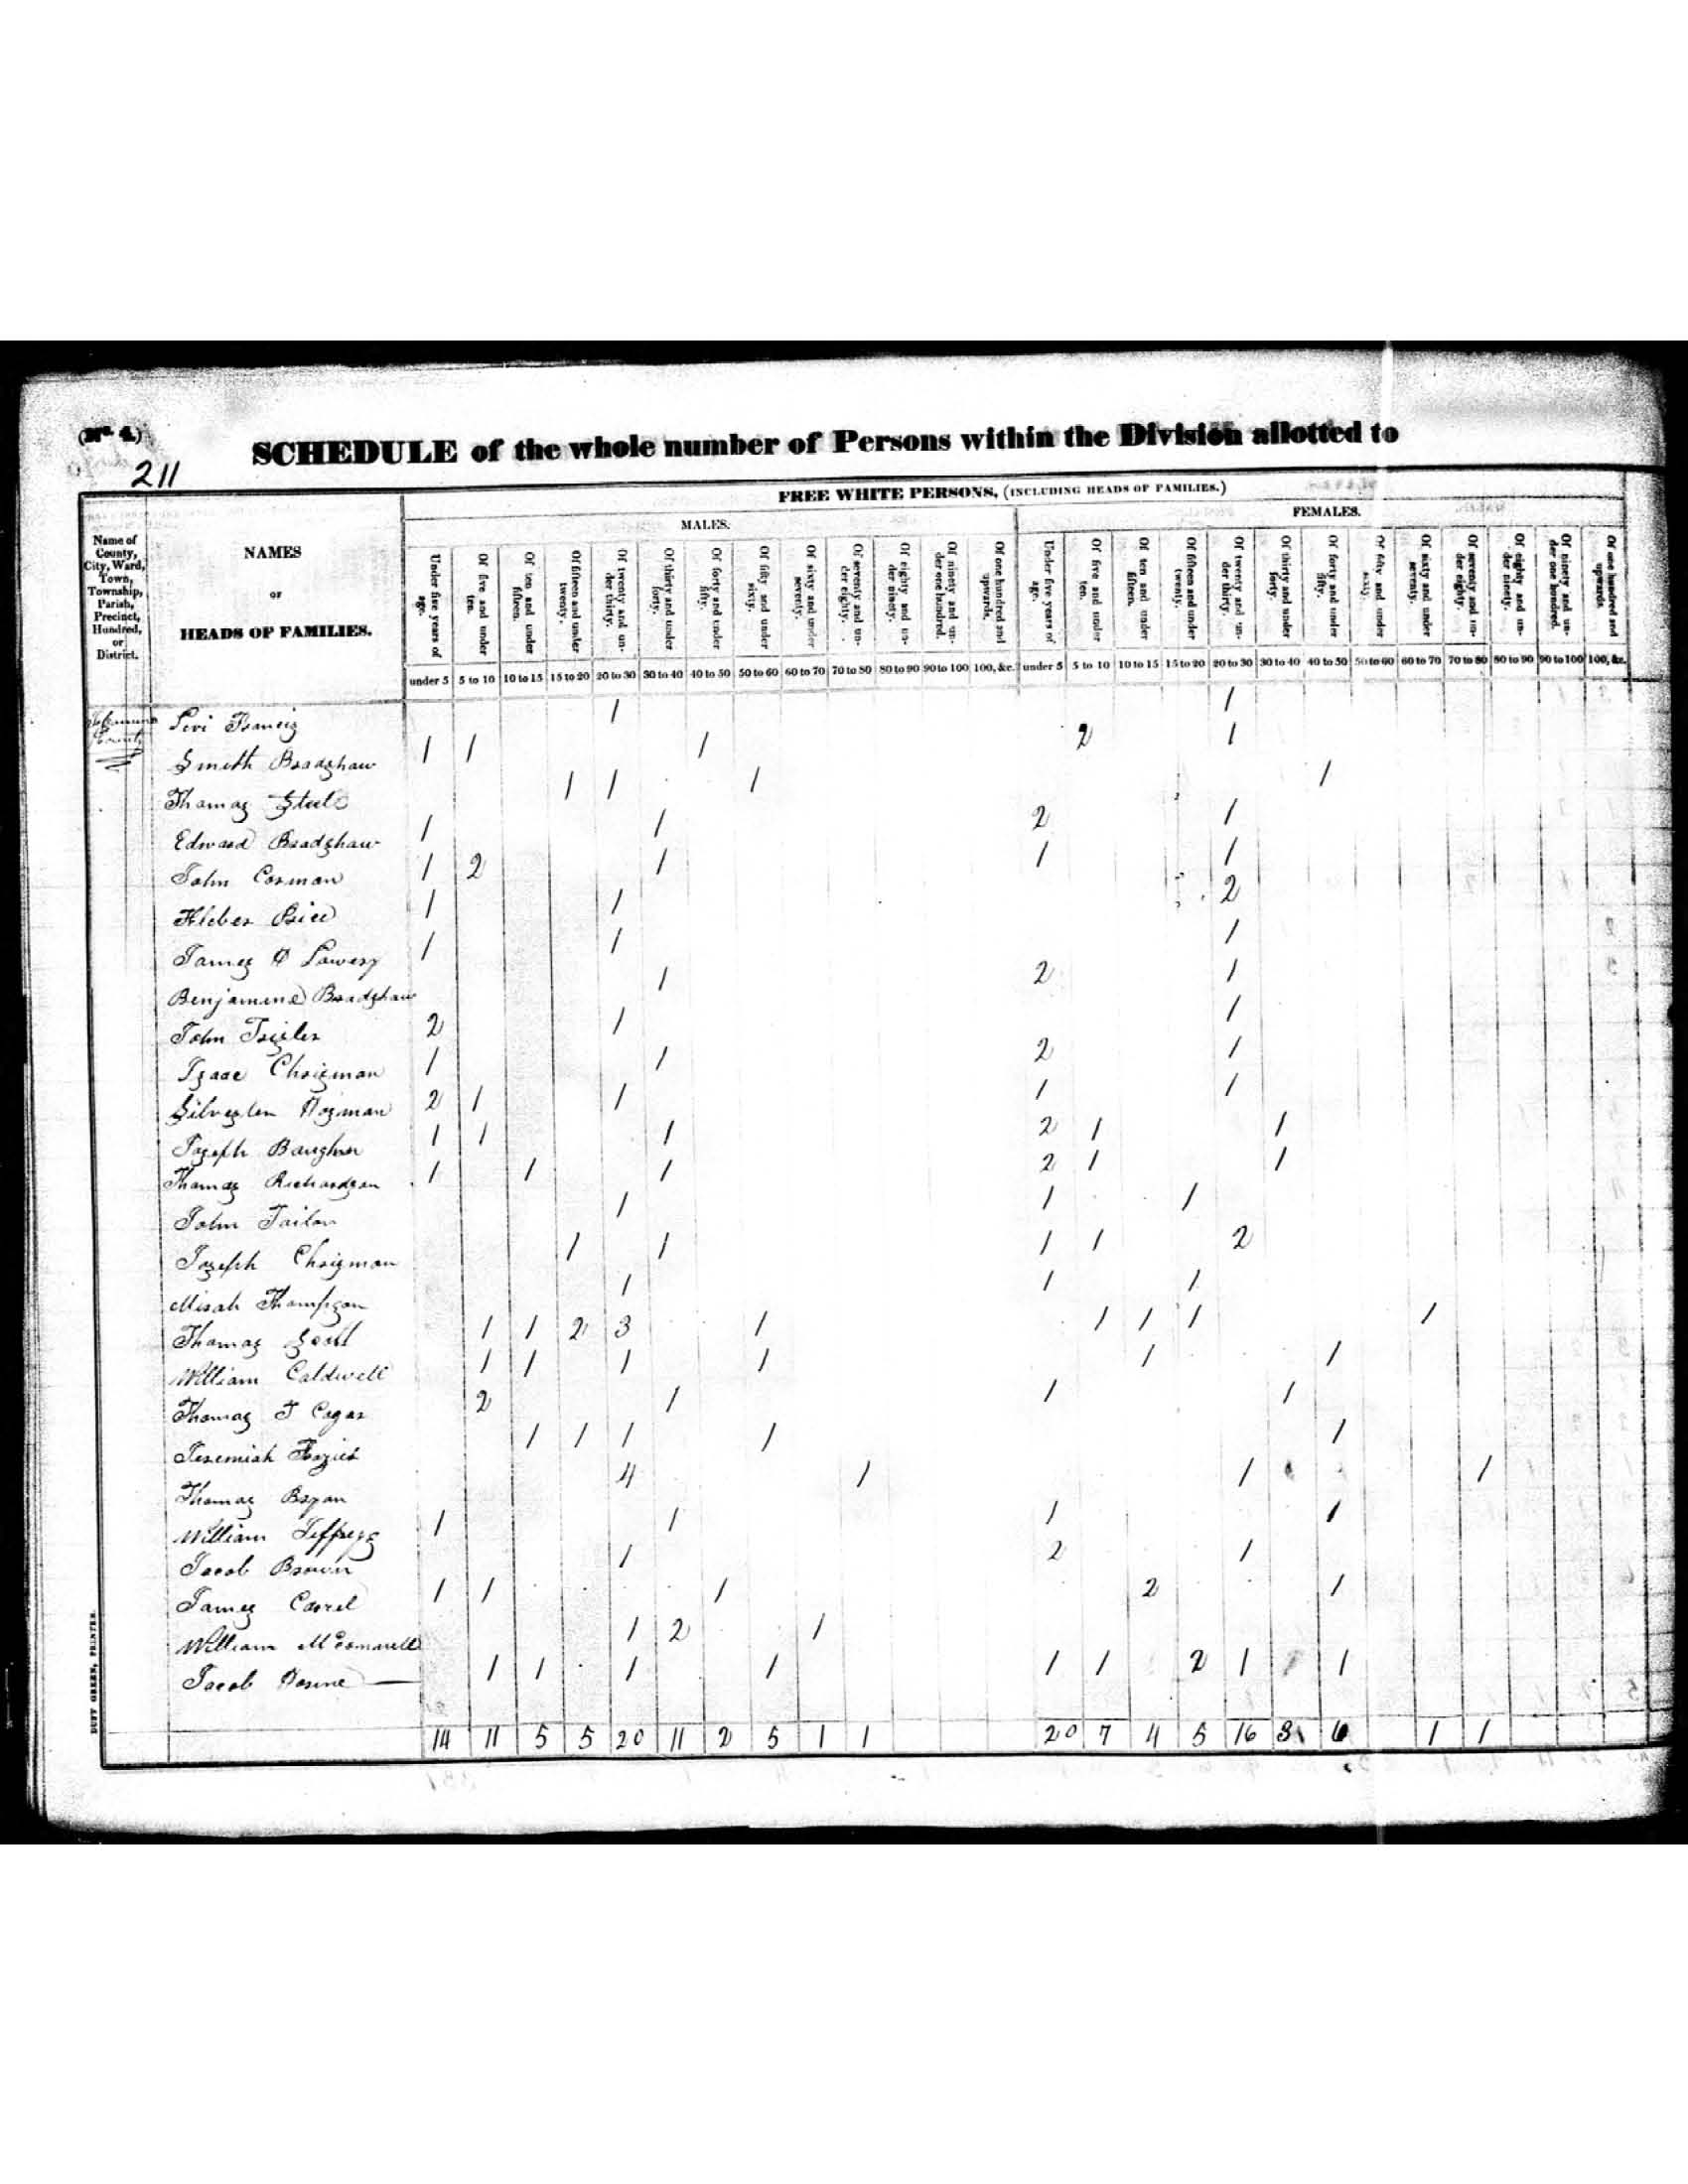 (No. 4.)
211
SCHEDULE of the whole number of Persons within the Division allotted to
FREE WHITE PERSONS, (INCLUDING HEADS OF FAMILIES.)
MALES. FEMALES.
Name of County, City, Ward, Town, Township, Parish, Precinct, Hundred, or District.
NAMES
OF
HEADS OF FAMILIES.
Under five years of age.
Of five and under ten.
Of ten and under fifteen.
Of fifteen and under twenty.
Of twenty and under thirty.
Of thirty and under forty.
Of forty and under fifty.
Of fifty and under sixty.
Of sixty and under seventy.
Of seventy and under eighty.
Of eighty and under ninety.
Of ninety and under one hundred.
Of one hundred and upwards.
Under five years of age.
Of five and under ten.
Of ten and under fifteen.
Of fifteen and under twenty.
Of twenty and under thirty.
Of thirty and under forty.
Of forty and under fifty.
Of fifty and under sixty.
Of sixty and under seventy.
Of seventy and under eighty.
Of eighty and under ninety.
Of ninety and under one hundred.
Of one hundred and upwards.
under 5 5 to 10 10 to 15 15 to 20 20 to 30 30 to 40 40 to 50 50 to 60 60 to 70 70 to 80 80 to 90 90 to 100 100, &c. under 5 5 to 10 10 to 15 15 to 20 20 to 30 30 to 40 40 to 50 50 to 60 60 to 70 70 to 80 80 to 90 90 to 100 100, &c.
County
Levi Francis 1 1
Smith Bradshaw 1 1 1 2 1
Thomas Steele 1 1 1 1
Edward Bradshaw 1 1 2 1
John Corman 1 2 1 1 1
Price 1 1 2
James Lowery 1 1 1
Benjamine Bradshaw 1 2 1
John 2 1 1
Isaac Chrisman 1 1 2 1
Silvester Rosman 2 1 1 1 1
Joseph Baugher 1 1 1 2 1 1
Thomas Richardson 1 1 1 2 1 1
John Tailor 1 1 1
Joseph Chrisman 1 1 1 1 2
Misah Thompson 1 1 1
Thomas Scott 1 1 2 3 1 1 1 1 1
William Caldwell 1 1 1 1 1 1
Thomas T Cogar 2 1 1 1
Jeremiah Frazier 1 1 1 1 1
Thomas Bryan 4 1 1 1
William Jeffreys 1 1 1 1
Jacob Brown 1 2 1
James Correl 1 1 1 2 1
William McConnell 1 2 1
Jacob 1 1 1 1 1 1 2 1 1
14 11 5 5 20 11 2 5 1 1 20 7 4 5 16 3 6 1 1
DUFF GREEN, PRINTER.